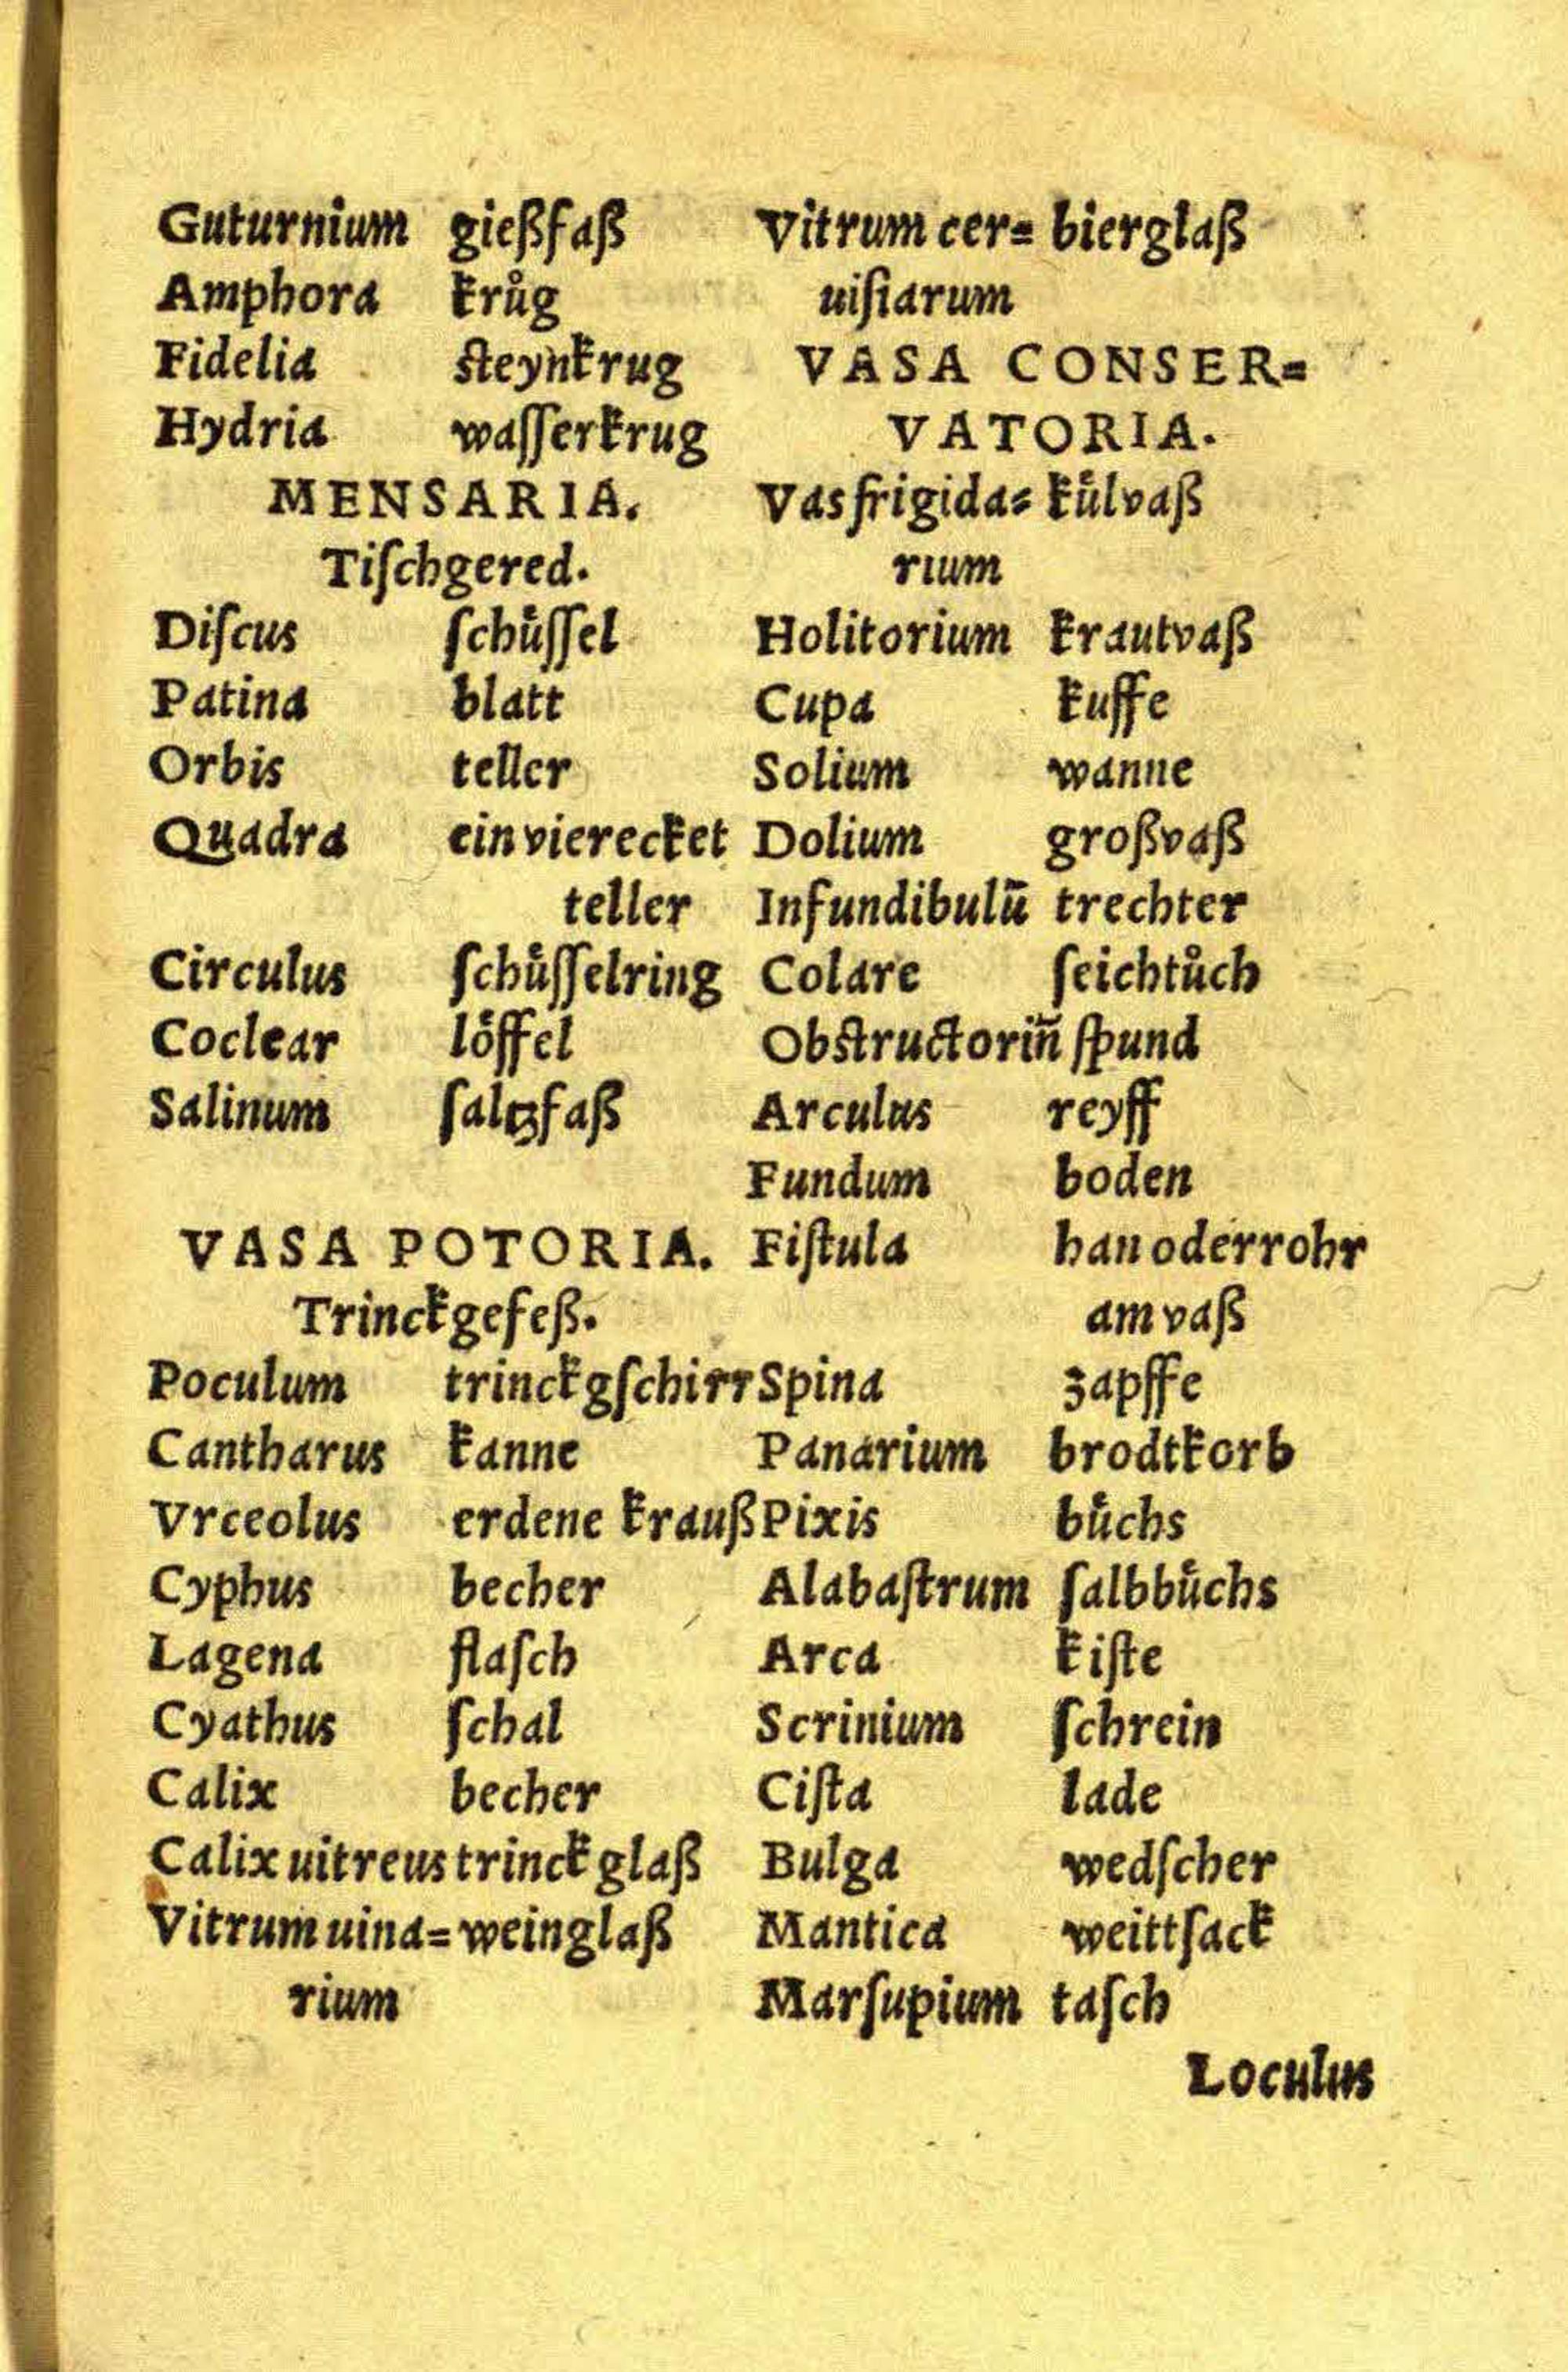 Guturnium gießfaß
Amphora krůg
Fidelia steynkrug
Hydria waſſerkrug
MENSARIA.
Tiſchgered.
Diſcus ſchuͤſſel
Patina blatt
Orbis teller
Quadra ein vierecket
teller
Circulus ſchuͤſſelring
Coclear loͤffel
Salinum ſaltzfaß
VASA POTORIA.
Trinckgefeß.
Poculum trinckgſchirr
Cantharus kanne
Vrceolus erdene krauß
Cyphus becher
Lagena flaſch
Cyathus ſchal
Calix becher
Calix uitreus trinckglaß
Vitrum uina= weinglaß
rium
Vitrum cer= bierglaß
uiſiarum
VASA CONSER=
VATORIA.
Vas frigida= kuͤlvaß
rium
Holitorium krautvaß
Cupa kuffe
Solium wanne
Dolium großvaß
Infundibulū trechter
Colare ſeichtůch
Obstructoriū ſpund
Arculus reyff
Fundum boden
Fiſtula han oder rohr
am vaß
Spina zapffe
Panarium brodtkorb
Pixis buͤchs
Alabaſtrum ſalbbuͤchs
Arca kiſte
Scrinium ſchrein
Ciſta lade
Bulga wedſcher
Mantica weittſack
Marſupium taſch
Loculus